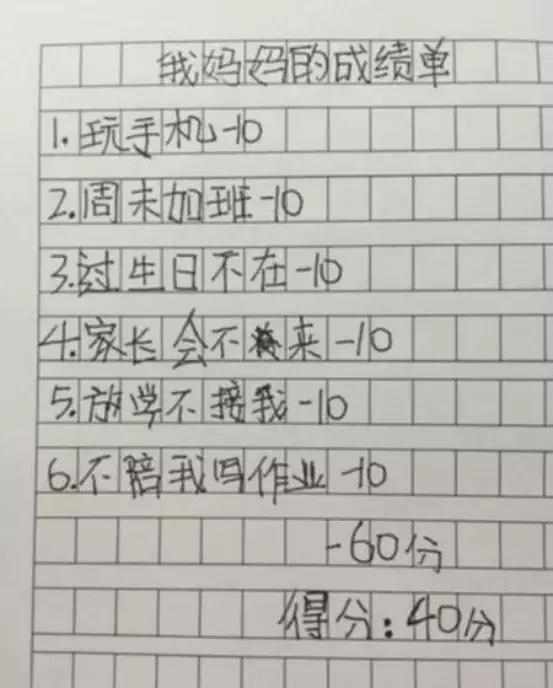 我妈妈的成绩单
1.玩手机-10
2.周未加班-10
3.过生日不在-10
4.家长会不来-10
5.放学不接我-10
6.不陪我写作业-10
-60份
得分:40分